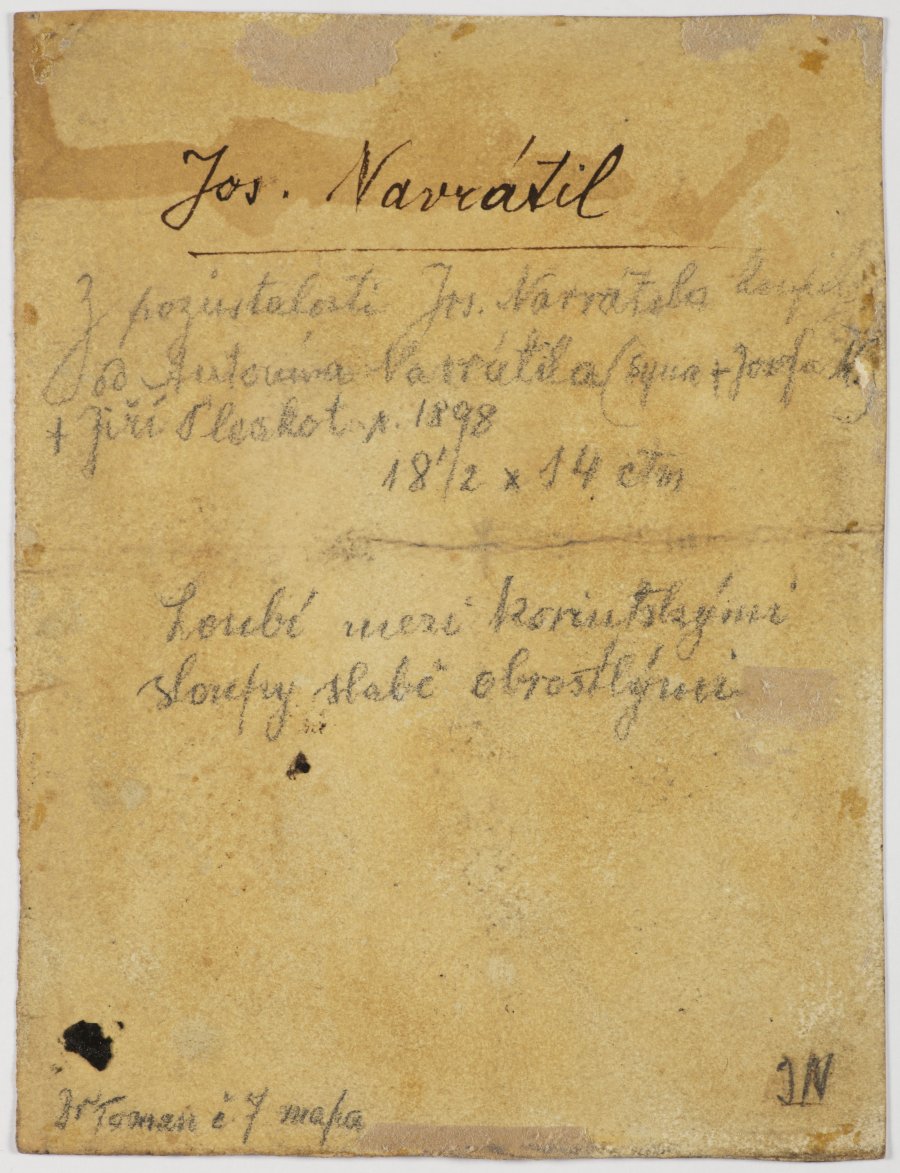 Jos. Navrátil
Z pozůstalosti Jos. Navrátila koupil
od Antonína Navrátila (syna + Josefa N.)
+ Jiří Pleskot r. 1898
18 1/2 x 14 ctm
Loubí mezi korintskými
sloupy slabě obrostlými
Dr Toman č 7 mapa
JN